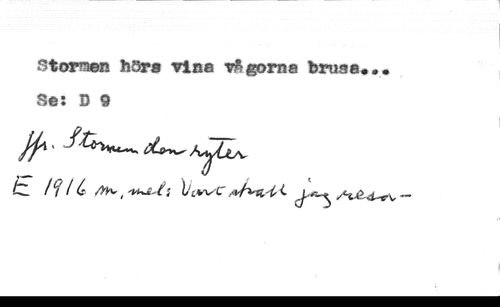 Stormen hörs vina vågorna brusa...
Se: D 9
jfr. Stormen den ryter
E 1916 m. mel: Vart skall jag resa-